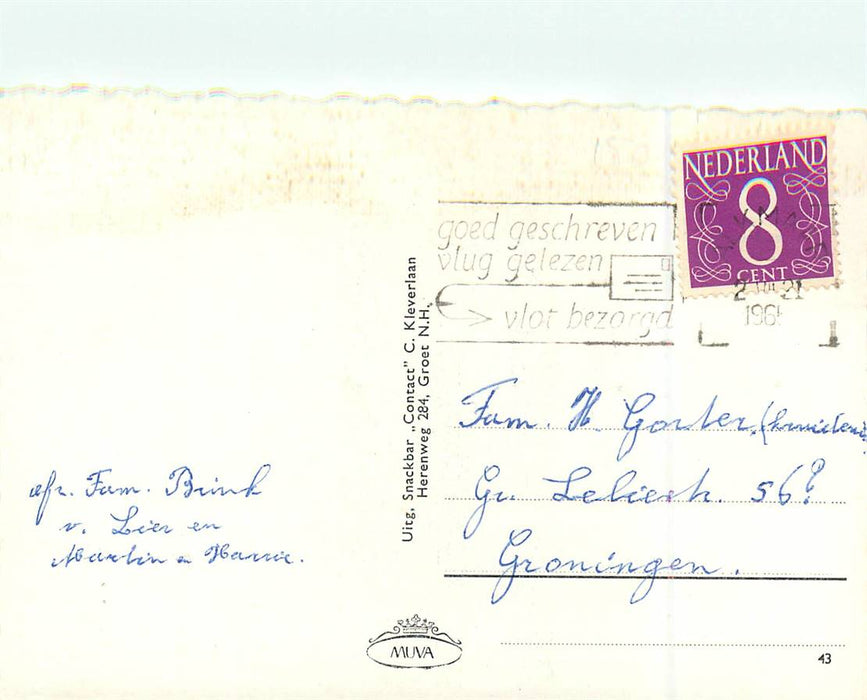 NEDERLAND
8
CENT
goed geschreven
vlug gelezen
vlot bezorgd
2
196
Uitg. Snackbar „Contact" C. Kleverlaan
Herenweg 284, Groet N.H.
Fam. H. Gorter
Gr. 56?
Groningen.
afz. Fam. Brink
v. Lier en
Martin en Harrie.
MUVA
43